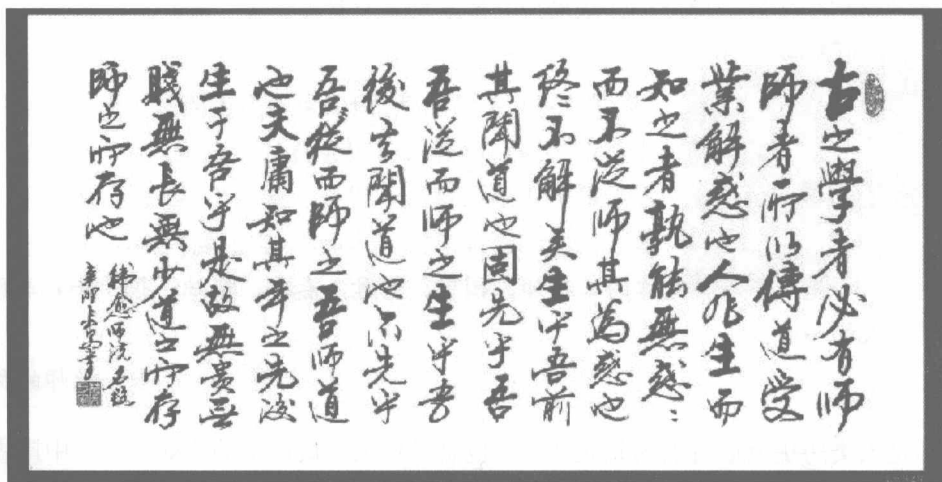 古之學者必有師
師者所以傳道受
業解惑也人非生而
知之者孰能無惑〻
而不從師其為惑也
終不解矣生乎吾前
其聞道也固先乎吾
吾從而師之生乎吾
後其聞道也亦先乎
吾從而師之吾師道
也夫庸知其年之先後
生于吾乎是故無貴無
賤無長無少道之所存
師之所存也
韓愈師說名段